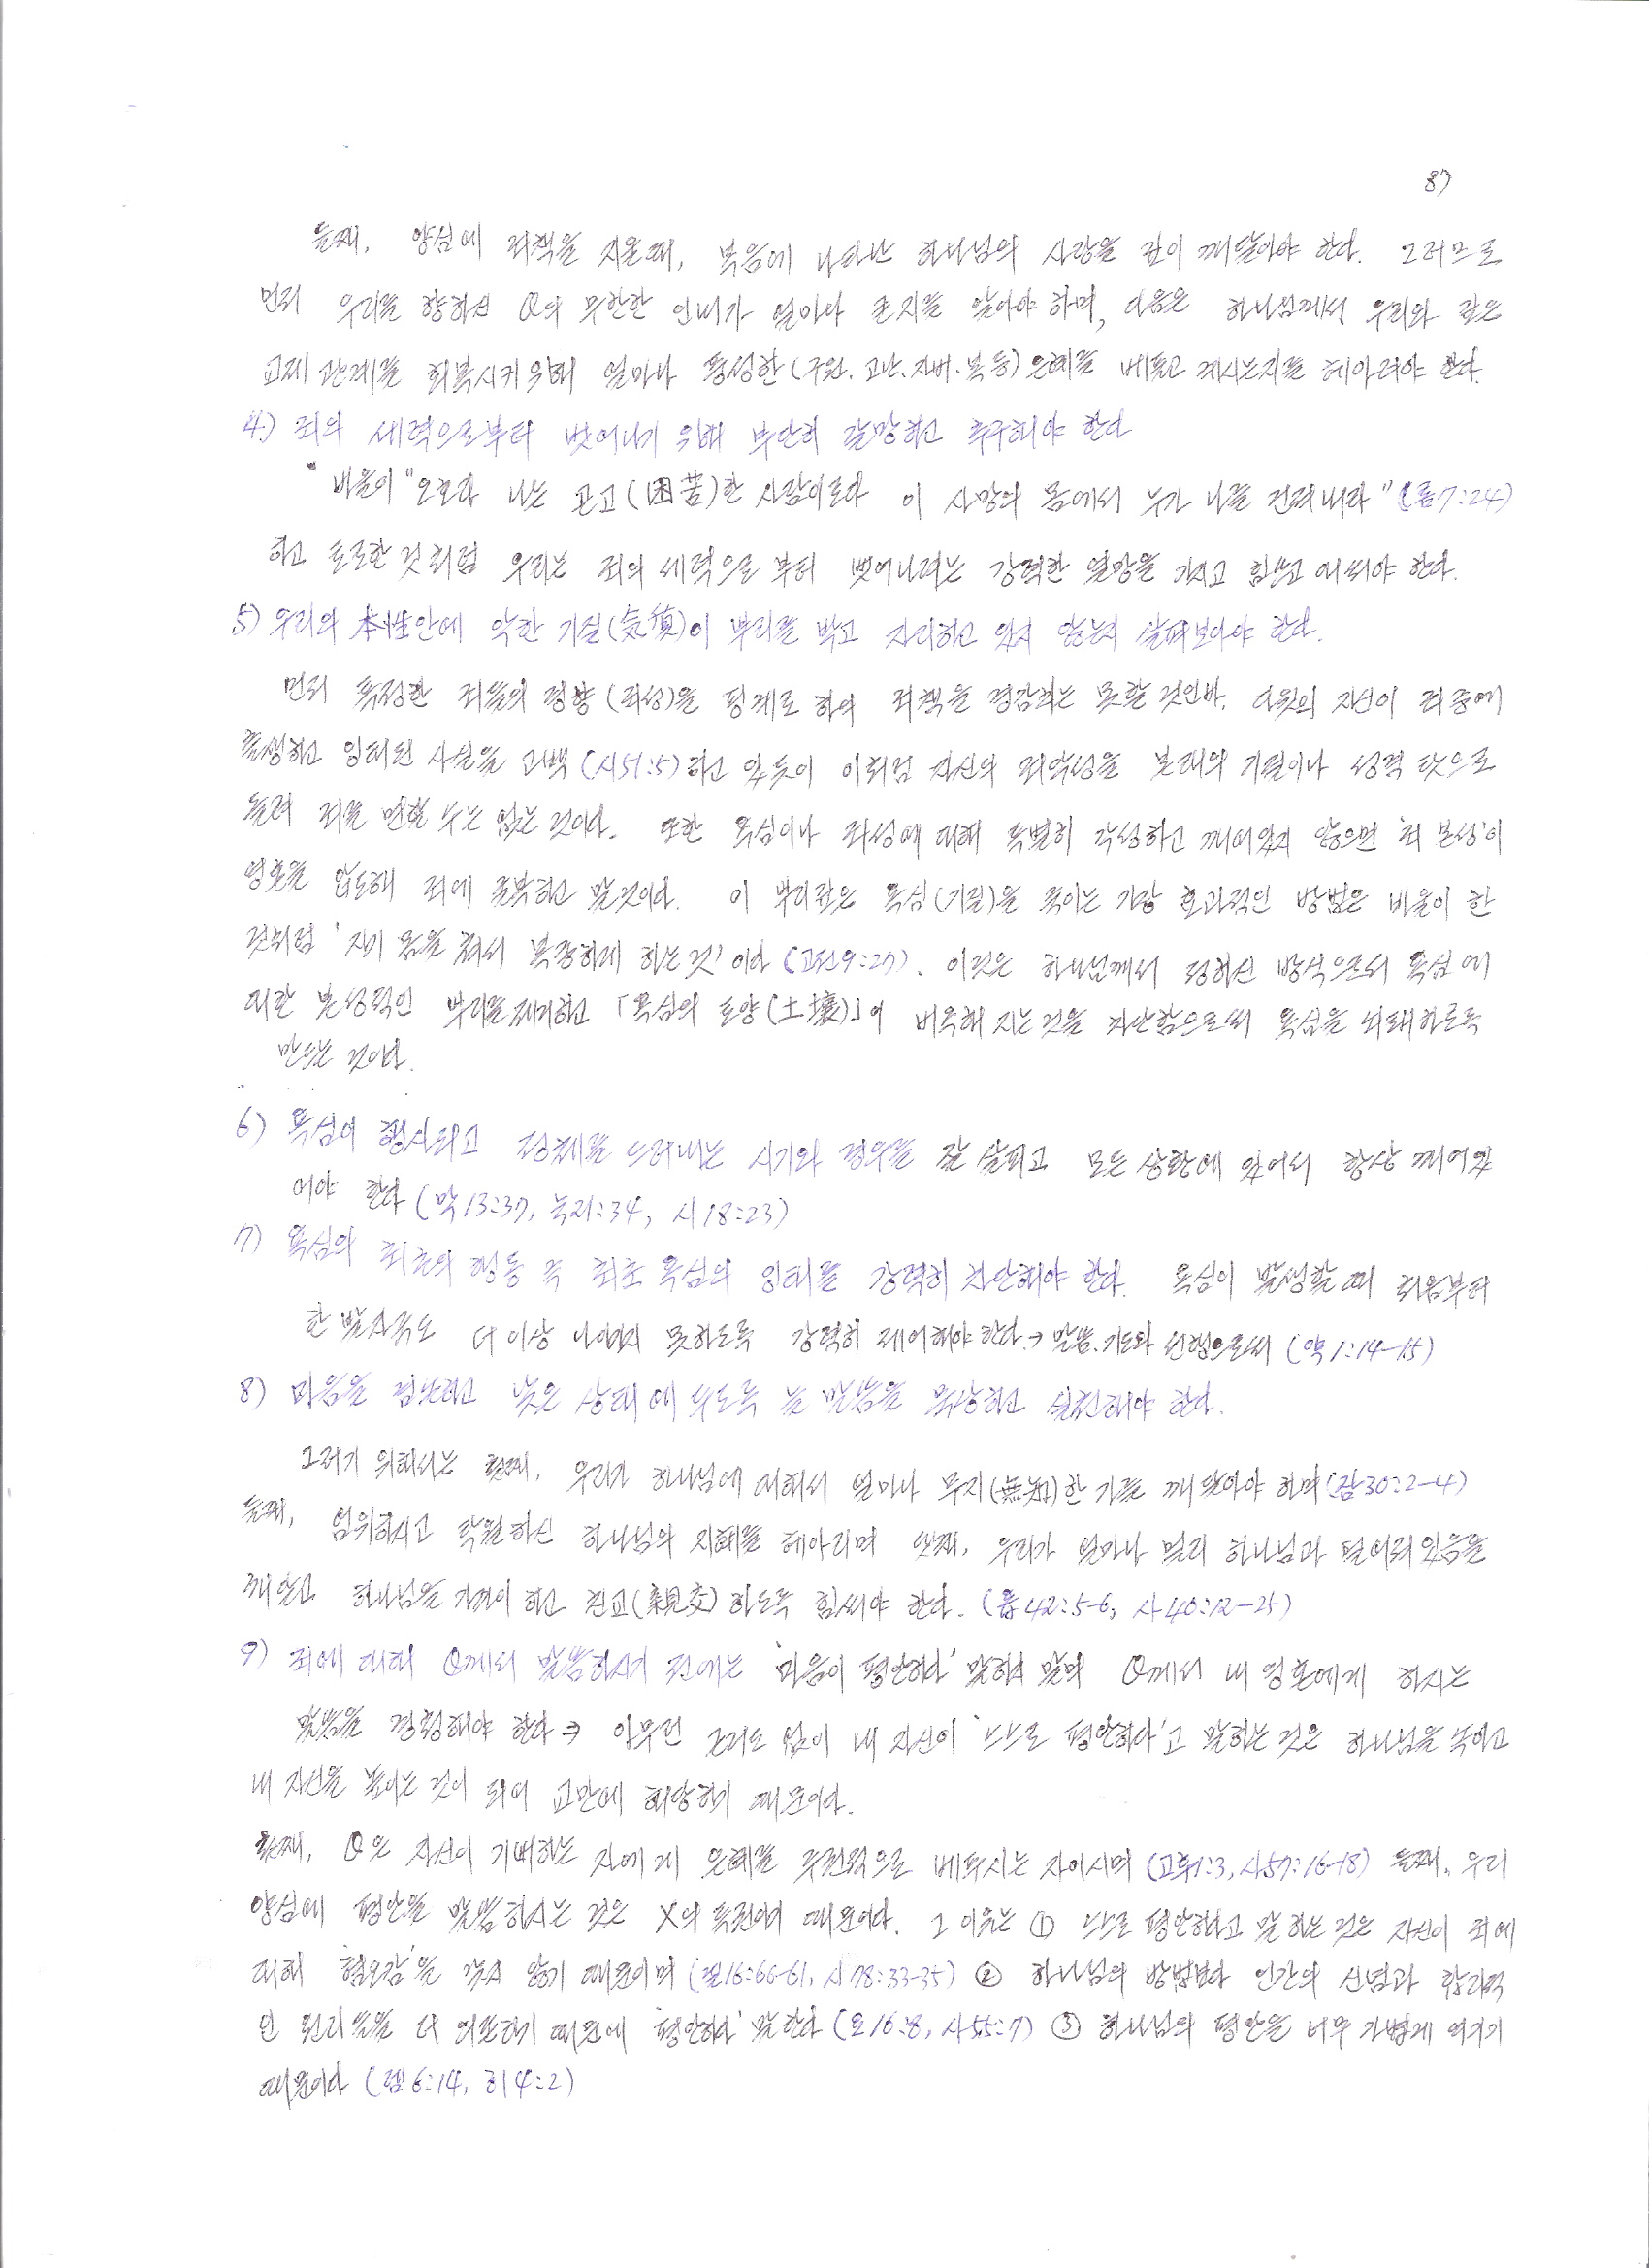 87
둘째, 양심에 죄책을 지울때, 복음에 나타난 하나님의 사랑을 깊이 깨달아야 한다. 그러므로
먼저 우리를 향하신 의 무한한 인내가 얼마나 큰지를 알아야 하며, 다음은 하나님께서 우리와 같은
교제 관계를 회복시키기 위해 얼마나 풍성한 (구원. 고난. 자비. 복 등) 은혜를 베풀고 계시는지를 헤아려야 한다.
4) 죄의 세력으로부터 벗어나기 위해 부단히 갈망하고 추구해야 한다
" 바울이 "오호라 나는 곤고(困苦)한 사람이로다 이 사망의 몸에서 누가 나를 건져내랴" (롬7:24)
하고 토로한 것처럼 우리는 죄의 세력으로 부터 벗어나려는 강력한 열망을 가지고 힘쓰고 애써야 한다.
5) 우리의 本性안에 악한 기질(氣質)이 뿌리를 박고 자리하고 있지 않는지 살펴보아야 한다.
먼저 특정한 죄들의 경향 (죄성)을 핑계로 하여 죄책을 경감하는 못할 것인바, 다윗의 자신이 죄중에
출생하고 잉태된 사실을 고백 (시51:5)하고 있듯이 이처럼 자신의 죄악성을 본래의 기질이나 성격 탓으로
돌려 죄를 면할 수는 없는 것이다. 또한 욕심이나 죄성에 대해 특별히 각성하고 깨어있지 않으면 '죄 본성'이
영혼을 압도해 죄에 굴복하고 말것이다. 이 뿌리깊은 욕심(기질)을 죽이는 가장 효과적인 방법은 바울이 한
것처럼 '자기 몸을 쳐서 복종하게 하는 것'이다 (고전9:27). 이것은 하나님께서 정하신 방식으로서 욕심에
대한 본성적인 뿌리를 제거하고 「욕심의 토양(土壤)」이 비옥해 지는 것을 차단함으로써 욕심을 쇠퇴하도록
만드는 것이다.
6) 욕심이 행사되고 정체를 드러내는 시기와 경우를 잘 살피고 모든 상황에 있어서 항상 깨어있
어야 한다 (막13:37, 눅21:34, 시18:23)
7) 욕심의 최초의 행동 즉 최초 욕심의 잉태를 강력히 차단해야 한다. 욕심이 발생할 때 처음부터
한 발자욱도 더 이상 나아가지 못하도록 강력히 제어해야 한다. → 말씀. 기도와 선행으로써 (약1:14-15)
8) 마음을 겸손하고 낮은 상태에 두도록 늘 말씀을 묵상하고 실천해야 한다.
그러기 위해서는 첫째, 우리가 하나님에 대해서 얼마나 무지(無知)한 가를 깨달아야 하며 (잠30:2-4)
둘째, 엄위하시고 탁월하신 하나님의 지혜를 헤아리며 셋째, 우리가 얼마나 멀리 하나님과 떨어져 있음을
깨닫고 하나님을 가까이 하고 친교(親交)하도록 힘써야 한다. (욥42:5-6, 사40:12-25)
9) 죄에 대해 께서 말씀하시기 전에는 '마음이 평안하다' 말하지 말며 께서 내 영혼에게 하시는
말씀을 경청해야 한다 ⇒ 아무런 근거도 없이 내 자신이 '스스로 평안하다'고 말하는 것은 하나님을 속이고
내 자신을 높이는 것이 되어 교만에 해당하기 때문이다.
첫째, 은 자신이 기뻐하는 자에게 은혜를 주권적으로 베푸시는 자이시며 (고후1:3, 사57:16-18) 둘째, 우리
양심에 평안을 말씀하시는 것은 X의 특권이기 때문이다. 그 이유는 ① 스스로 평안하다고 말하는 것은 자신이 죄에
대해 '혐오감'을 갖지 않기 때문이며 (겔16:60-61, 시78:33-35) ② 하나님의 방법보다 인간의 신념과 합리적
인 원리들을 더 의존하기 때문에 '평안하다' 말한다 (요16:8, 사55:7) ③ 하나님의 평안을 너무 가볍게 여기기
때문이다 (렘6:14, 히4:2)